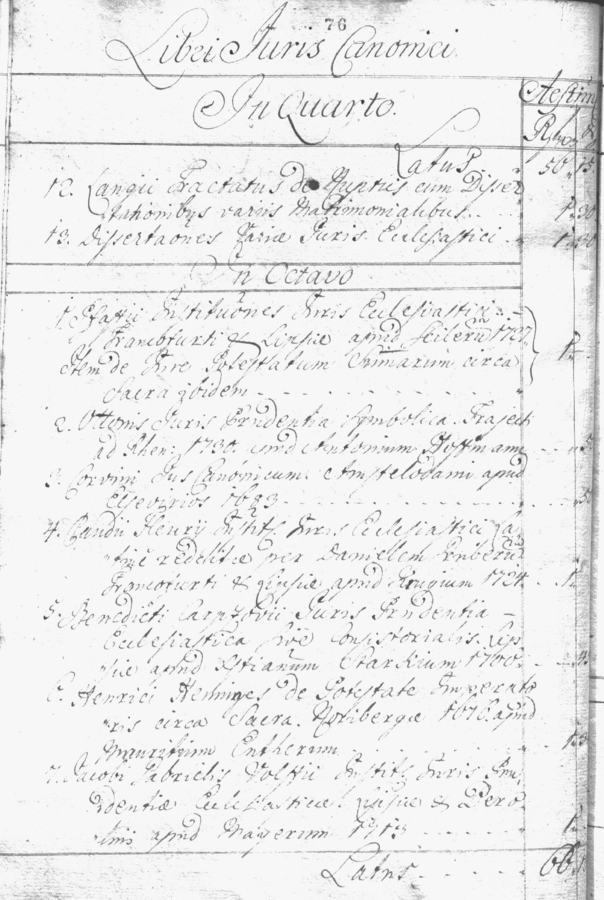 76
Libri Juris Canonici.
In Quarto.
Aestim
Latus 50 15
12. Langii Tractatus de Nuptiis cum Disser
tationibus variis Matrimonialibus
13. Dissertaones Variæ Juris Ecclesiastici
In Octavo
1. Institutiones Juris Ecclesiastici
Francofurti & Lipsiæ apud 1727.
Item de Jure Potestatum Civi circa
Sacra ibidem
2. Ottonis Juris Prudentia Symbolica. Trajecti
ad Rhen: 1730. apud Antonium
3. Corvini Jus Canonicum. Amstelodami apud
Elsevirios
4. Claudii Fleury Instits Juris Ecclesiastici La
tine redditæ per Danielem
Francofurti & Lipsiæ apud 1724.
5. Benedicti Carpzovii Juris Prudentia
Ecclesiastica sive Consistorialis. Lip
siæ apud Starkium 1700.
6. Henrici Heninges de Potestate Imperato
ris circa Sacra. Noribergæ 1676. apud
Mauritium Entherum
7. Jacobi Gabrielis Wolffii Instits Juris Pru
dentiæ Ecclesiasticæ. Lipsiæ & Bero
lini apud 1713
Latus 66